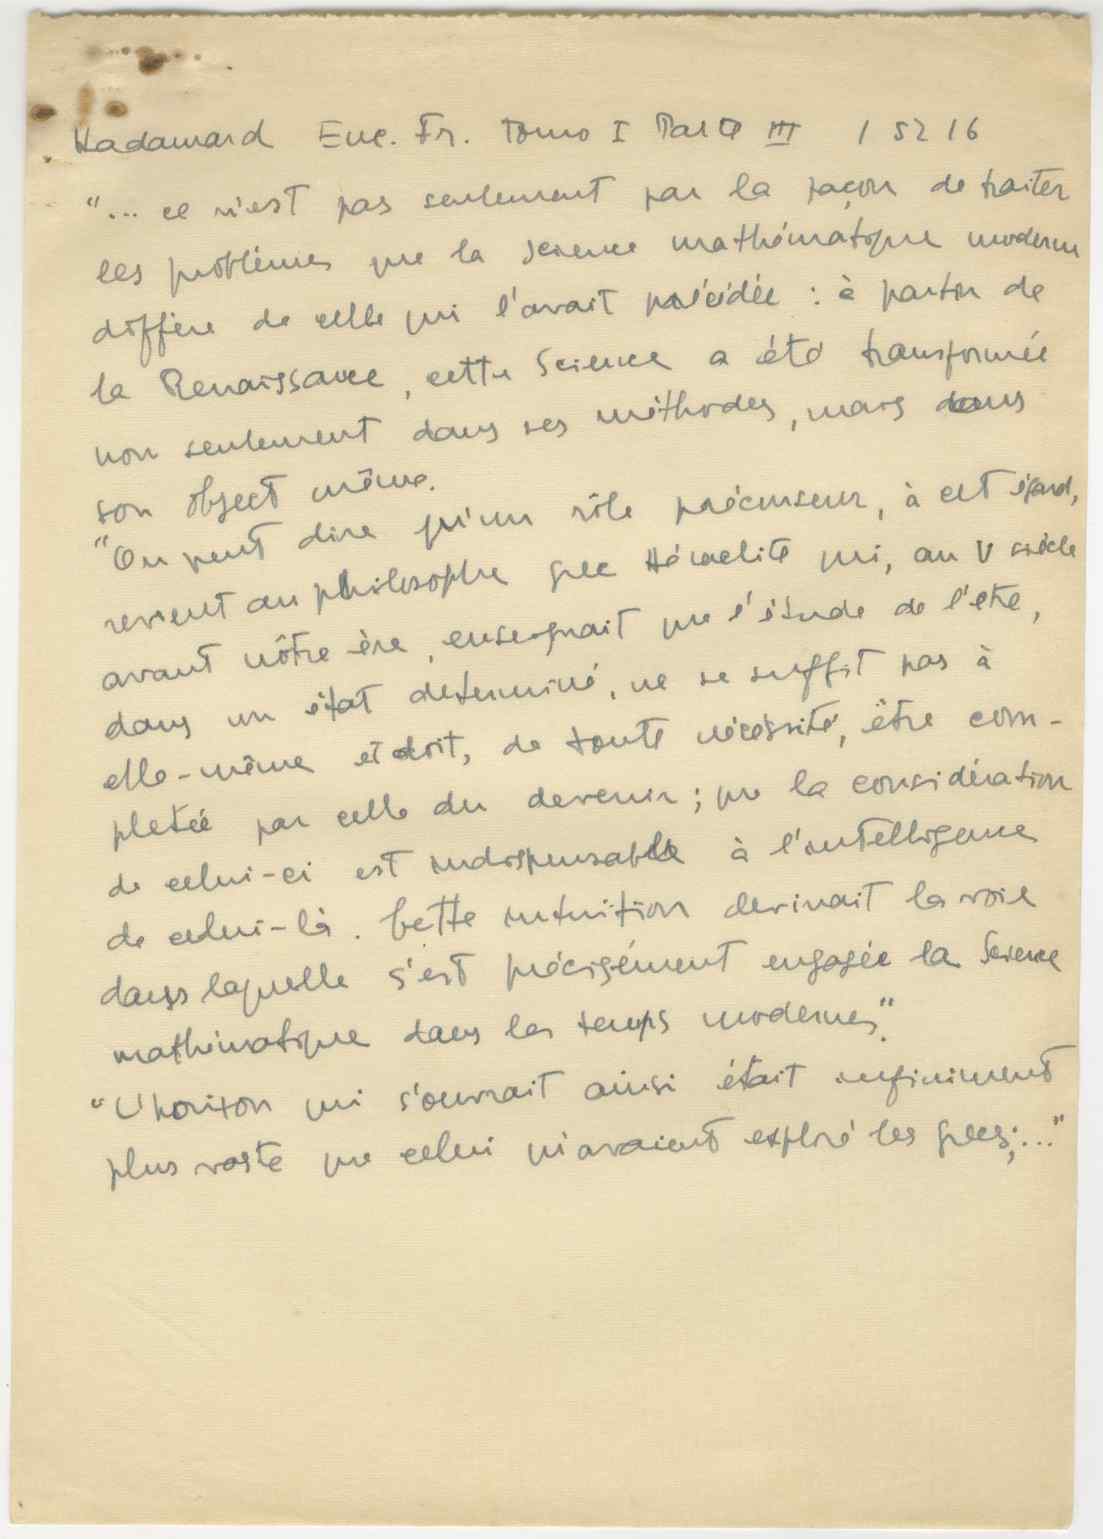 Hadamard Enc. Fr. Tomo I Parte III 1 52 16
"... ce n'est pas seulement par la façon de traiter
les problèmes que la science mathématique moderne
diffère de celle qui l'avait précédée : à partir de
la Renaissance, cette Science a été transformée
non seulement dans ses méthodes, mais dans
son object même.
"On peut dire qu'un rôle précurseur, à cet égard,
revient au philosophe grec Héraclite qui, au V siècle
avant nôtre ère, enseignait que l'étude de l'etre,
dans un état determiné, ne se suffit pas à
elle-même et doit, de toute nécéssité, être com-
pletée par celle du devenir; que la considération
de celui-ci est indispensable à l'intelligence
de celui-là. Cette intuition devinait la voie
dans laquelle s'est précisément engagée la Science
mathématique dans les temps modernes".
"L'horizon qui s'ouvrait ainsi était infiniment
plus vaste que celui qu'avaient exploré les grecs;..."